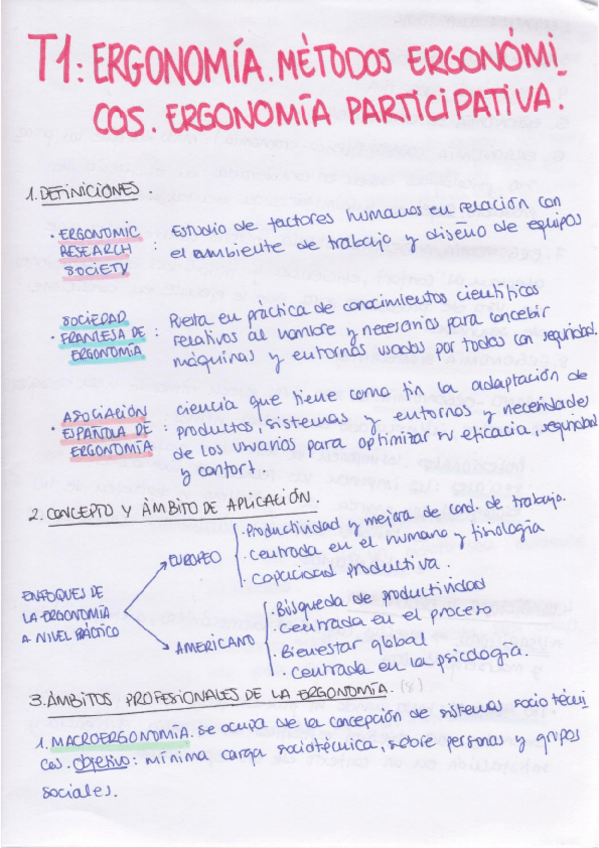 T1: ERGONOMÍA. MÉTODOS ERGONÓMI_
COS. ERGONOMÍA PARTICIPATIVA.
1. DEFINICIONES.
· ERGONOMIC RESEARCH SOCIETY : Estudio de factores humanos en relación con
el ambiente de trabajo y diseño de equipos
· SOCIEDAD FRANCESA DE ERGONOMÍA : Puesta en práctica de conocimientos científicos
relativos al hombre y necesarios para concebir
máquinas y entornos usados por todos con seguridad.
· ASOCIACIÓN ESPAÑOLA DE ERGONOMÍA : ciencia que tiene como fin la adaptación de
productos, sistemas y entornos y necesidades
de los usuarios para optimizar su eficacia, seguridad
y confort.
2. CONCEPTO Y ÁMBITO DE APLICACIÓN.
ENFOQUES DE
LA ERGONOMÍA
A NIVEL PÁCTICO
EUROPEO
· Productividad y mejora de cond. de trabajo.
· Centrada en el humano y fisiología
· Capacidad productiva.
AMERICANO
· Búsqueda de productividad
· Centrada en el proceso
· Bienestar global
· Centrada en la psicología.
3. ÁMBITOS PROFESIONALES DE LA ERGONOMÍA. (8)
1. MACROERGONOMÍA. se ocupa de la concepción de sistemas sociotécni
cos. objetivo: mínima carga sociotécnica, sobre personas y grupos
sociales.